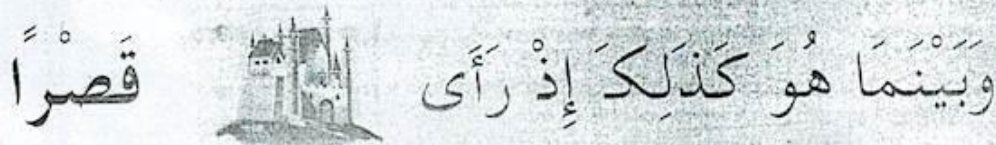 وَبَيْنَمَا هُوَ كَذَلِكَ إِذْ رَأَى قَصْرًا